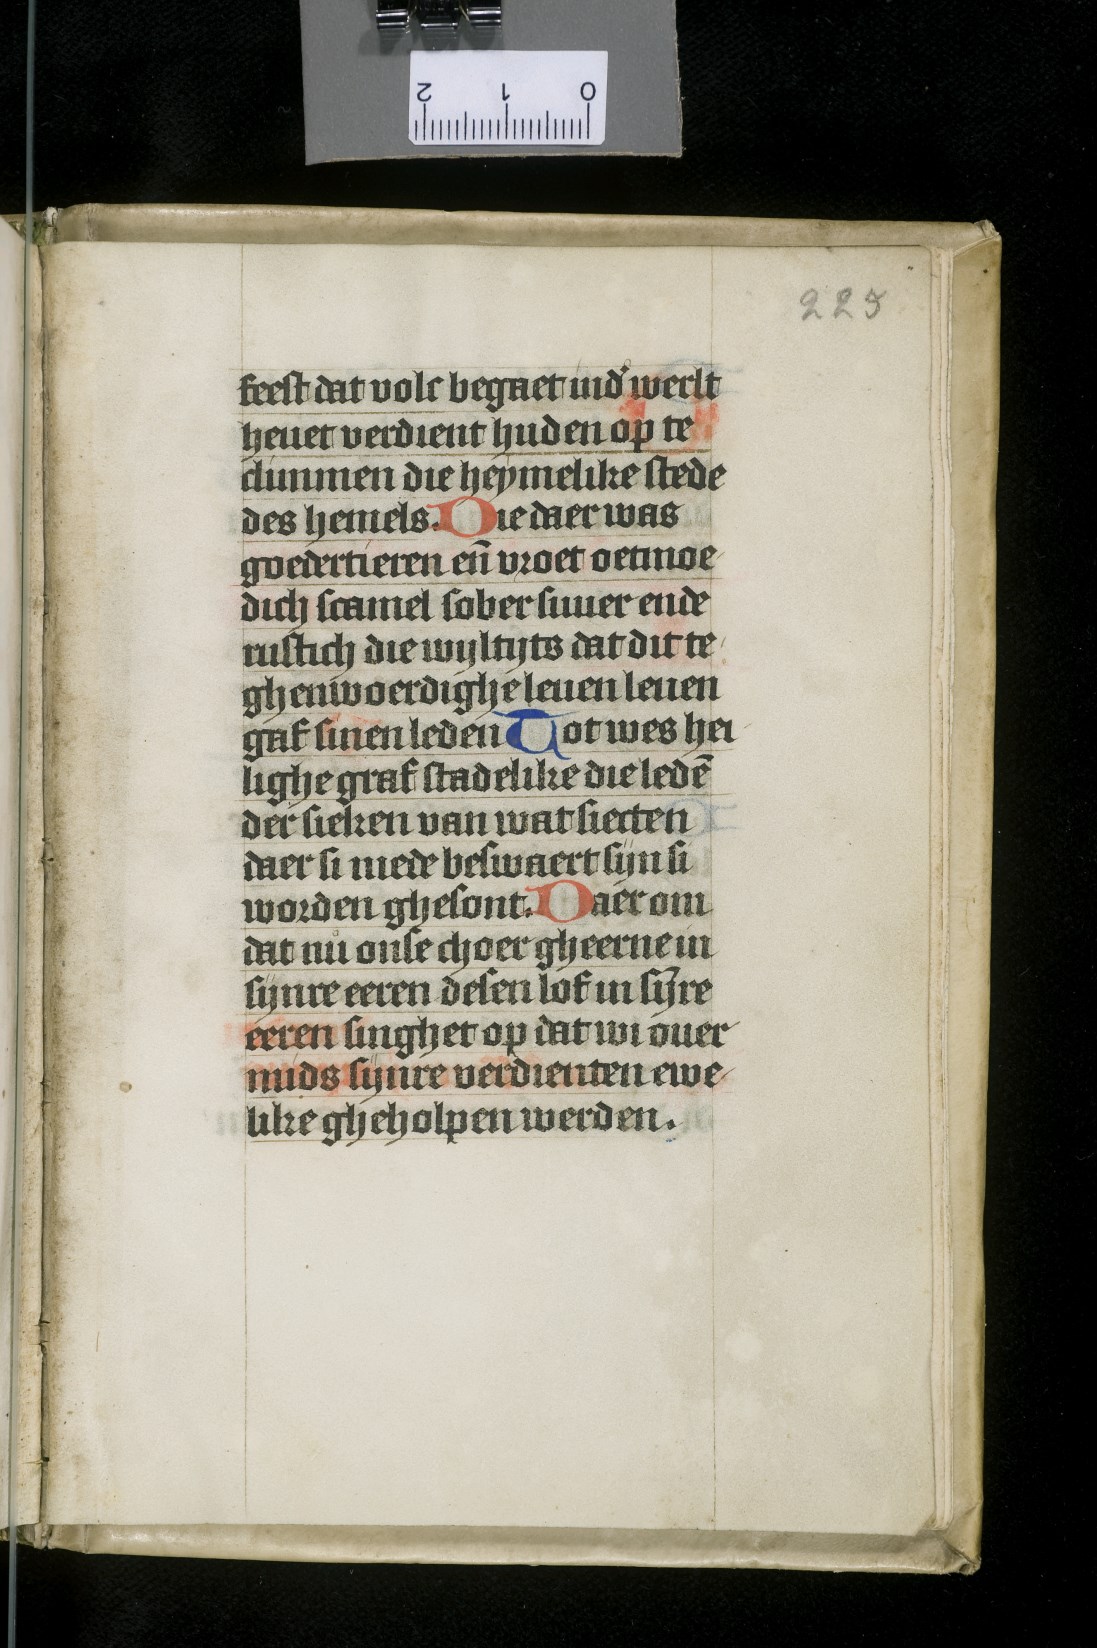 2 1 0
225
feest dat volc begaet in d' werlt
heuet verdient huden op te
climmen die heymelike stede
des hemels. Die daer was
goedertieren en̄ vroet oetmoe
dich scamel sober suuer ende
rustich die wyltyts dat dit te
ghenwoerdighe leuen leuen
gaf sinen leden Tot wes hei
lighe graf stadelike die ledē
der sieken van wat siecten
daer si mede beswaert sijn si
worden ghesont. Daer om
dat nu onse choer gheerne in
sijnre eeren desen lof in sijre
eeren singhet op dat wi ouer
mids sijnre verdienten ewe
like gheholpen werden.